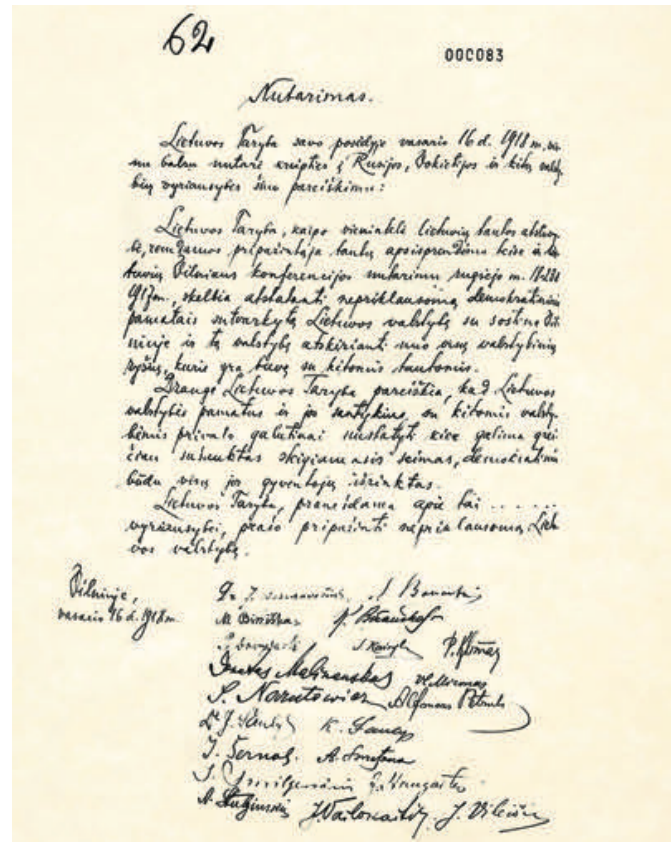 62
000083
Nutarimas.
Lietuvos Taryba savo posėdyje vasario 16 d. 1918 m. vie-
nu balsu nutarė kreiptis į Rusijos, Vokietijos ir kitų valsty-
bių vyriausybes šiuo pareiškimu:
Lietuvos Taryba, kaipo vienintelė lietuvių tautos atstovy-
bė, remdamos pripažintąja tautų apsisprendimo teise ir lie-
tuvių Vilniaus konferencijos nutarimu rugsėjo m. 18-23 d.
1917 m., skelbia atstatanti nepriklausomą demokratiniais
pamatais sutvarkytą Lietuvos valstybę su sostine Vil-
niuje ir tą valstybę atskirianti nuo visų valstybinių
ryšių, kurie yra buvę su kitomis tautomis.
Drauge Lietuvos Taryba pareiškia, kad Lietuvos
valstybės pamatus ir jos santykius su kitomis valsty-
bėmis privalo galutinai nustatyti kiek galima grei-
čiau sušauktas steigiamasis seimas, demokratiniu
būdu visų jos gyventojų išrinktas.
Lietuvos Taryba, pranešdama apie tai . . . . . .
vyriausybei, prašo pripažinti nepriklausomą Lietu-
vos valstybę.
Vilniuje,
vasario 16 d. 1918 m.
Dr. J. Basanavičius S. Banaitis
M. Biržiška K. Bizauskas
P. Dovydaitis S. Kairys P. Klimas
Donatas Malinauskas Vl. Mironas
S. Narutowicz Alfonsas Petrulis
Dr J. Šaulys K. Šaulys
J. Šernas A. Smetona
J. Smilgevičius J. Staugaitis
A. Stulginskis J. Vailokaitis J. Vileišis